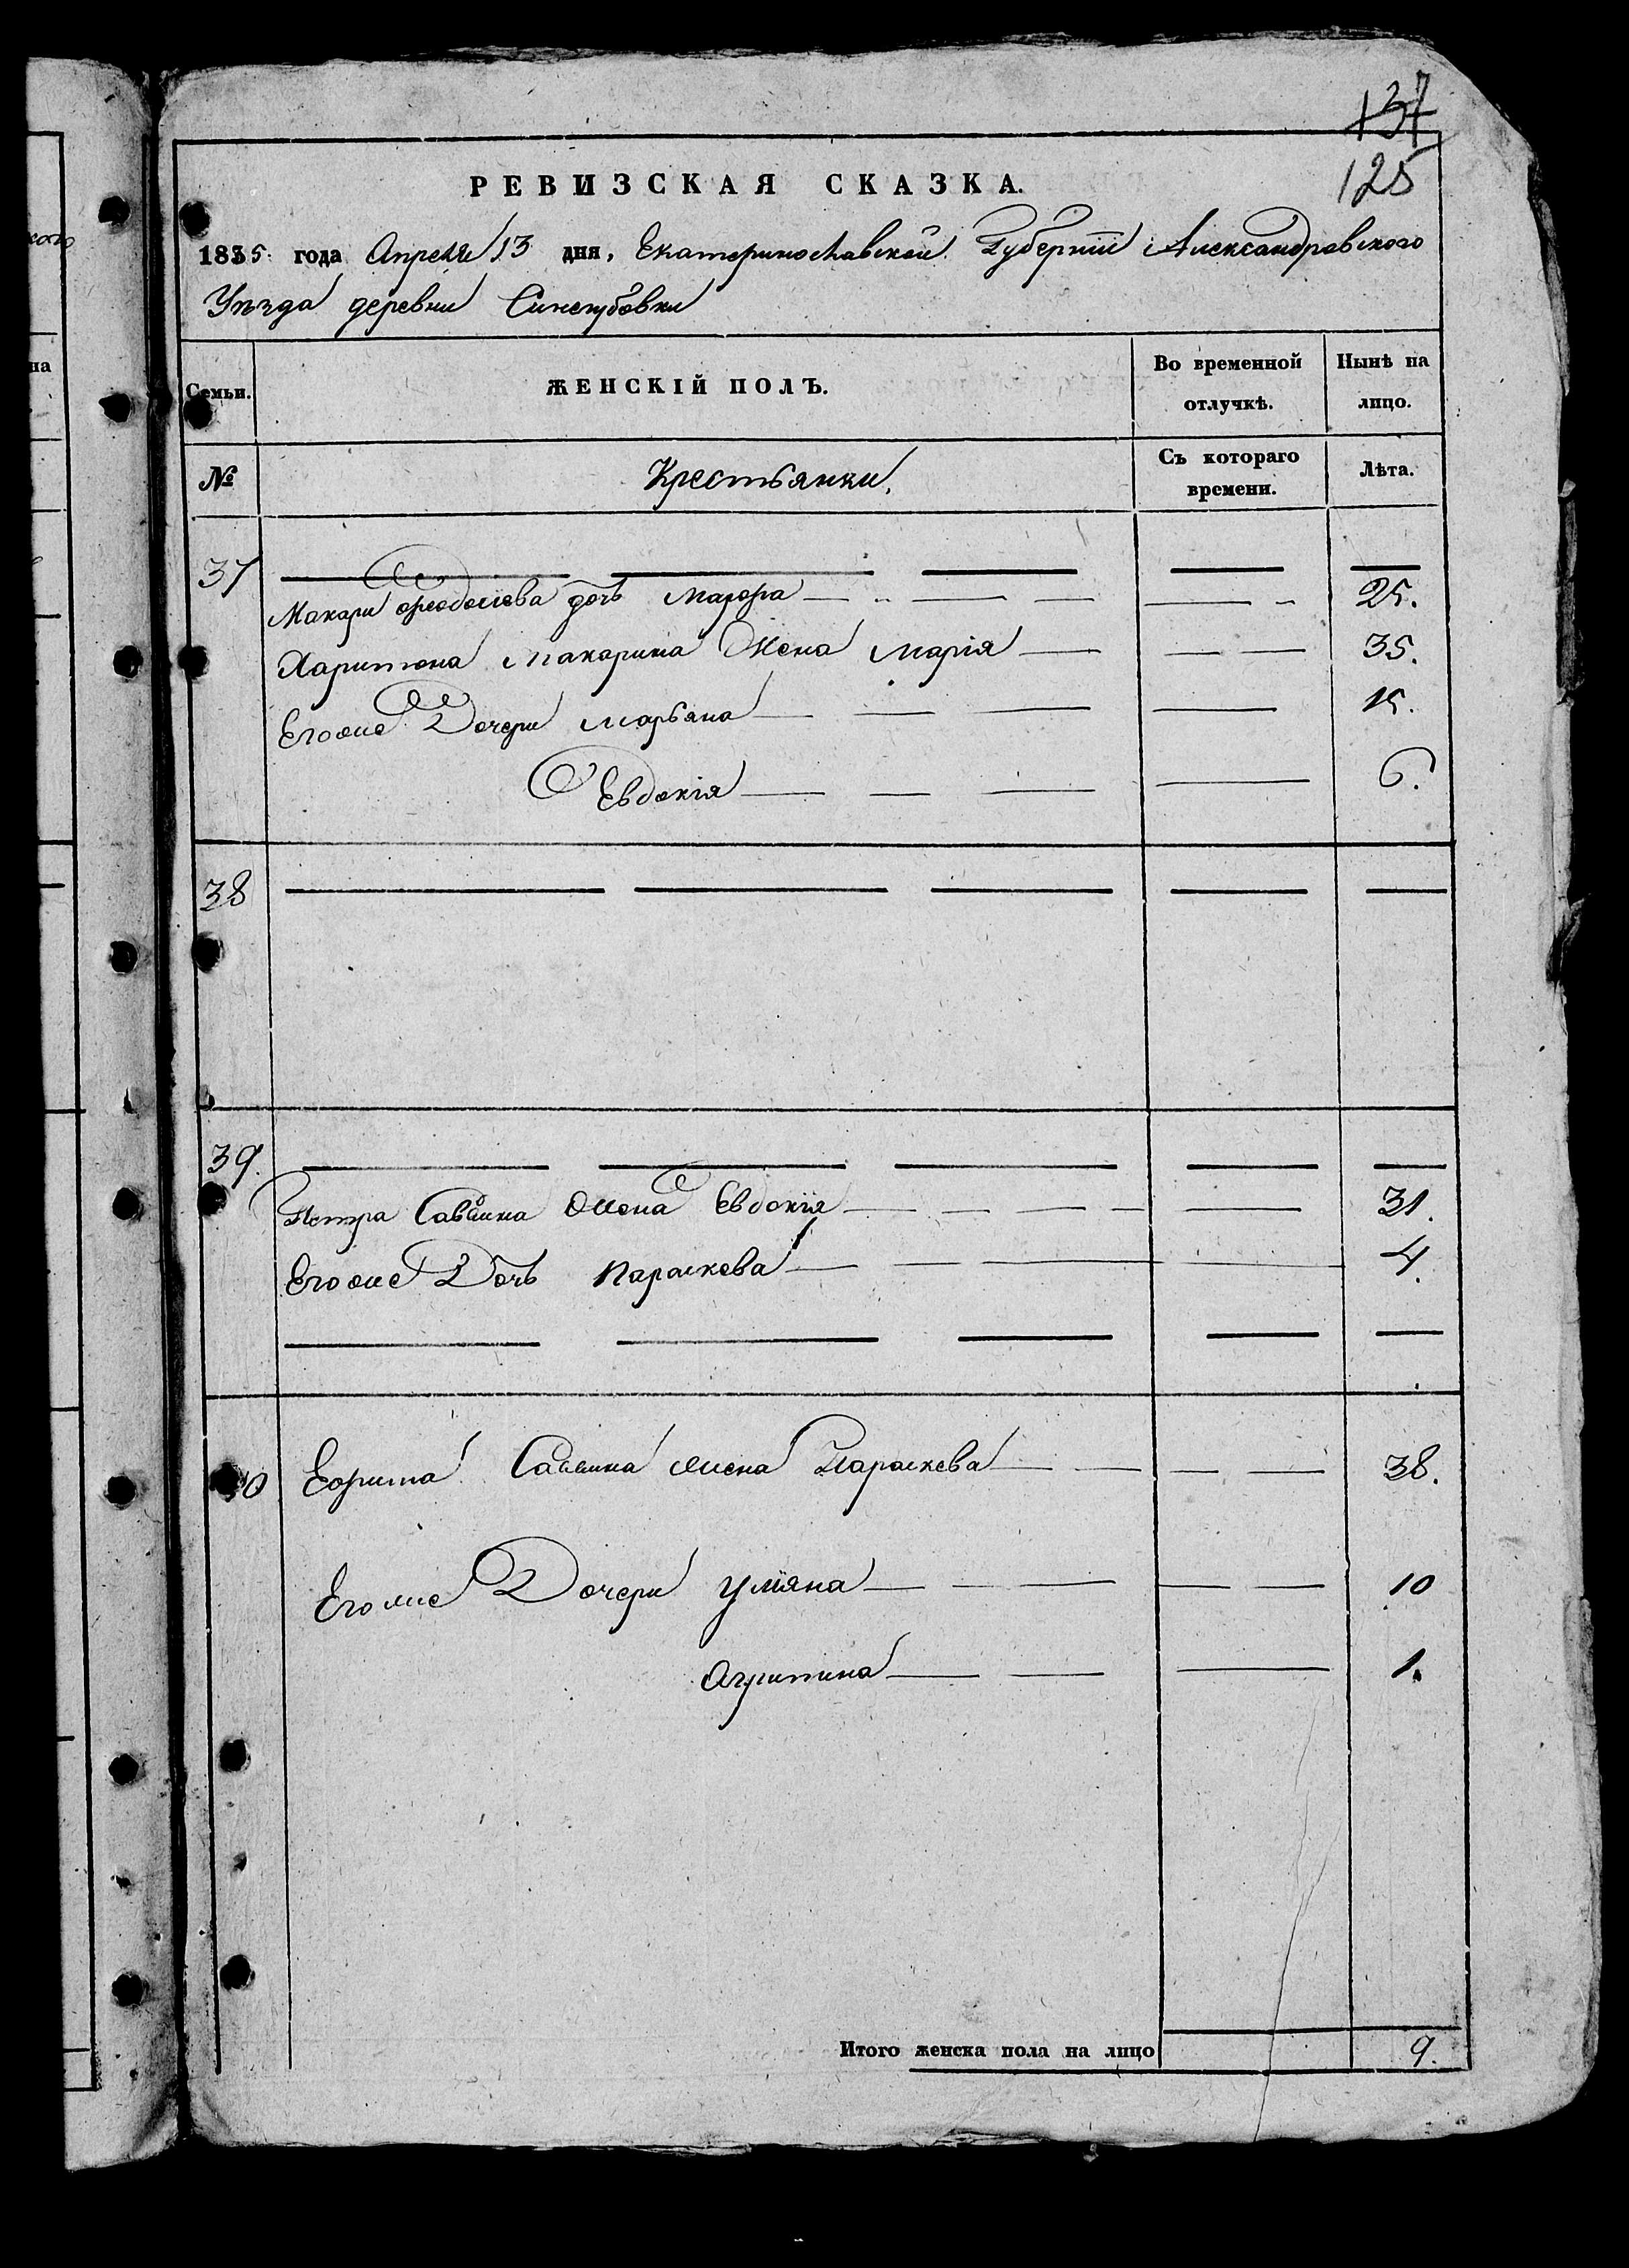 137
125
РЕВИЗСКАЯ СКАЗКА.
1835 года Апреля 13 дня, Екатеринославской Губернїи Александровского
Уѣзда деревни
Семьи.
ЖЕНСКІЙ ПОЛЪ.
Во временной отлучкѣ.
Нынѣ на лицо.
№
Крестьянки.
Съ котораго времени.
Лѣта.
37
Макара дочь Марфа 25.
Харитона Макарина Жена Марія 35.
Егоже Дочери Марьяна 15.
Евдокія 6.
38
39.
Петра Саввина Жена Евдокїя 31.
Егоже Дочь Параскева 4.
40 Ефима Саввина жена Параскева 38.
Егоже Дочери Улїяна 10
Агрипина 1.
Итого женска пола на лицо 9.
кого
на